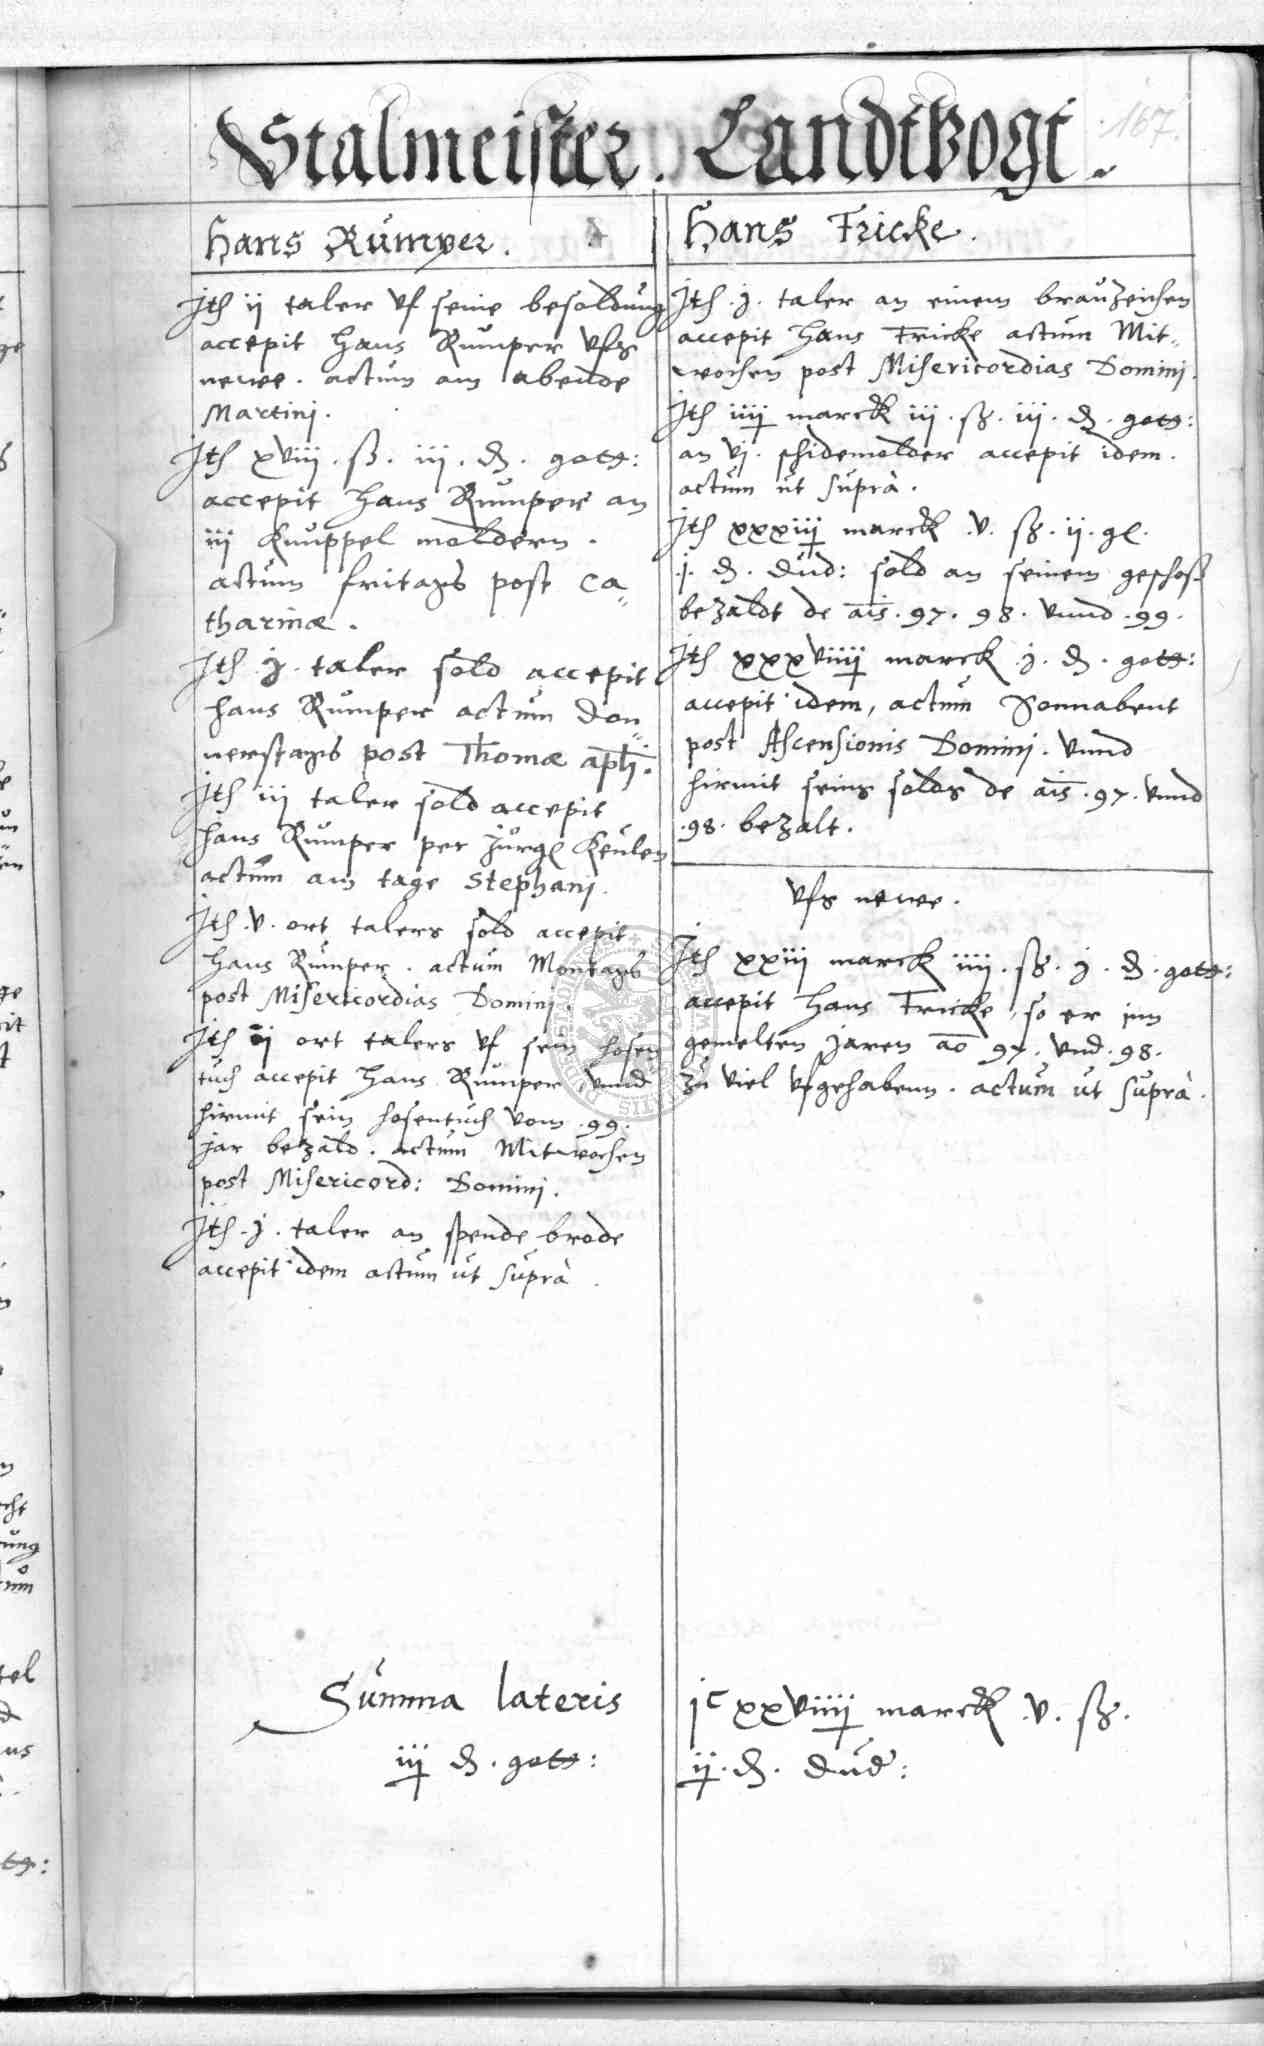 Stalmeister. Landtvogt.
167.
Hans Rumper.
Jtē ii taler vf seine besoldung
accepit Hans Rumper vfs
newe. actum am abende
Martinj.
Jtē xviii. ß. iii. ₰. gott:
accepit Hans Rumper an
iij Knuppel moldern.
actum fritags post Ca„
tharinæ.
Jtē .j. taler sold accepit
Hans Rumper actum don„
nerstags post Thomæ aplj.
Jtē iij taler sold accepit
Hans Rumper per Jurgē Keulen
actum am tage Stephanj.
Jtē .v. ort talers sold accepit
Hans Rumper. actum Montags
post Misericordias Dominj.
Jtē ij ort talers vf sein hosen
tuch accepit Hans Rumper, vnnd
hirmit sein hosentuch vom .99.
jar bezald. actum Mitwochen
post Misericord: Dominj.
Jtē .j. taler an spende brode
accepit idem actum ut suprà.
Summa lateris
Hans Fricke.
Jtē .j. taler an einem brauzeichen
accepit Hans Fricke actum Mit„
wochen post Misericordias Dominj.
Jtē iiij marck iij. ß. iij. ₰. gott:
an vj. schidemolder accepit idem.
actum ut suprà.
Jtē xxxiij marck .v. ß. ij. gl.
.j. ₰. dud: sold an seinem geschoß
bezaldt de ais. 97. 98. vnnd .99.
Jtē xxxviiij marck .j. ₰. gott:
accepit idem, actum Sonnabent
post Ascensionis Dominj. vnnd
hirmit seins solds de ais .97. vnnd
.98. bezalt.
vfs newe.
Jtē xxiij marck iiij. ß. j. ₰. gott:
accepit Hans Fricke, so er inn
gemelten jaren ao 97. vnd. 98.
zu viel vfgehabenn. actum ut suprà.
jc xxviiij marck .v. ß.
iij ₰. gott:
ij. ₰. dud: